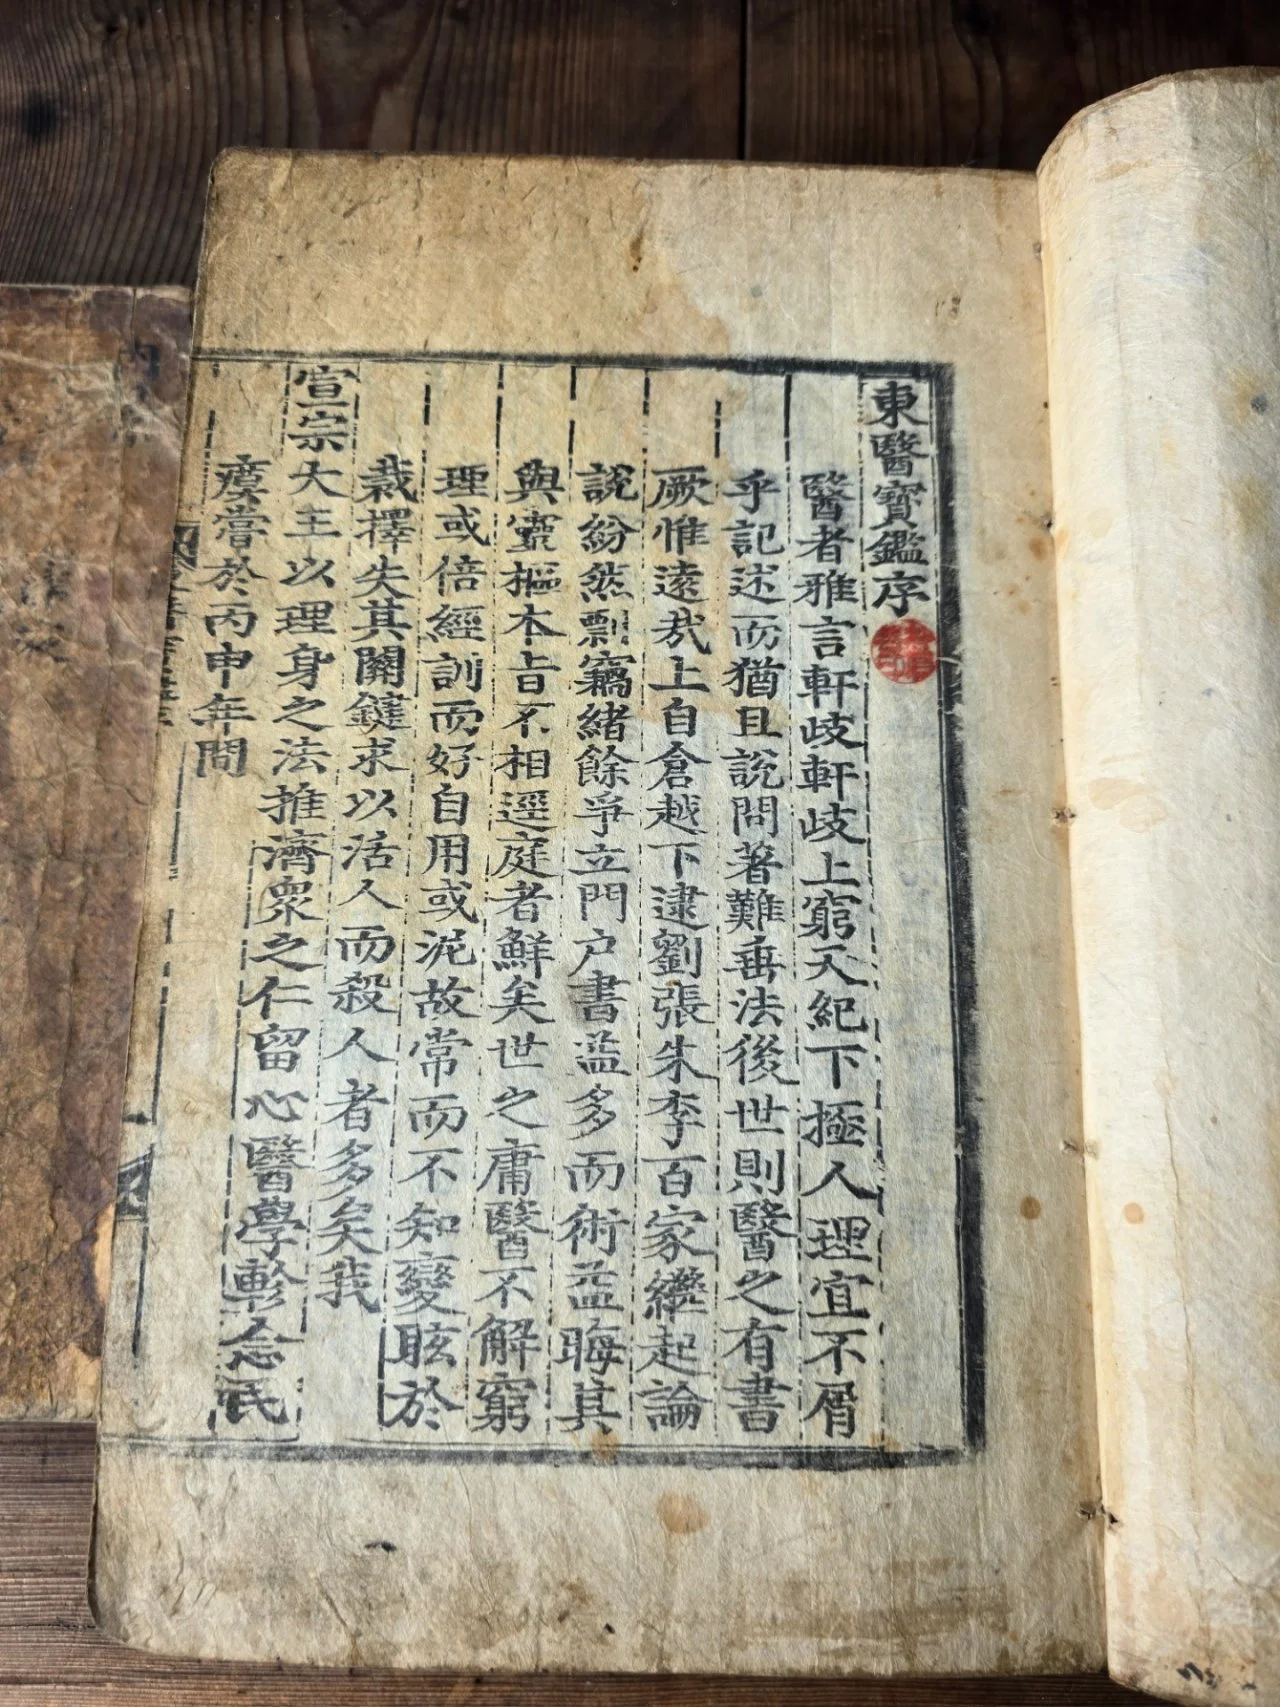 東醫寶鑑序
醫者雅言軒歧軒歧上窮天紀下極人理宜不屑
乎記述而猶且說問著難垂法後世則醫之有書
厥惟遠哉上自倉越下逮劉張朱李百家繼起論
說紛然剽竊緖餘爭立門戶書益多而術益晦其
與靈樞本旨不相逕庭者鮮矣世之庸醫不解窮
理或倍經訓而好自用或泥故常而不知變眩於
裁擇失其關鍵求以活人而殺人者多矣我
宣宗大王以理身之法推濟衆之仁留心醫學軫念民
瘼嘗於丙申年間